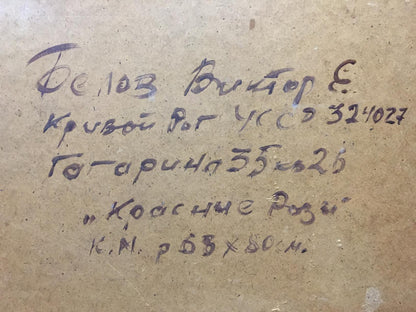 Белов Виктор Е
Кривой Рог УССР 324027
Гагарина 35 кв 26
„Красние Рози"
К.М. р 63 х 80 см.